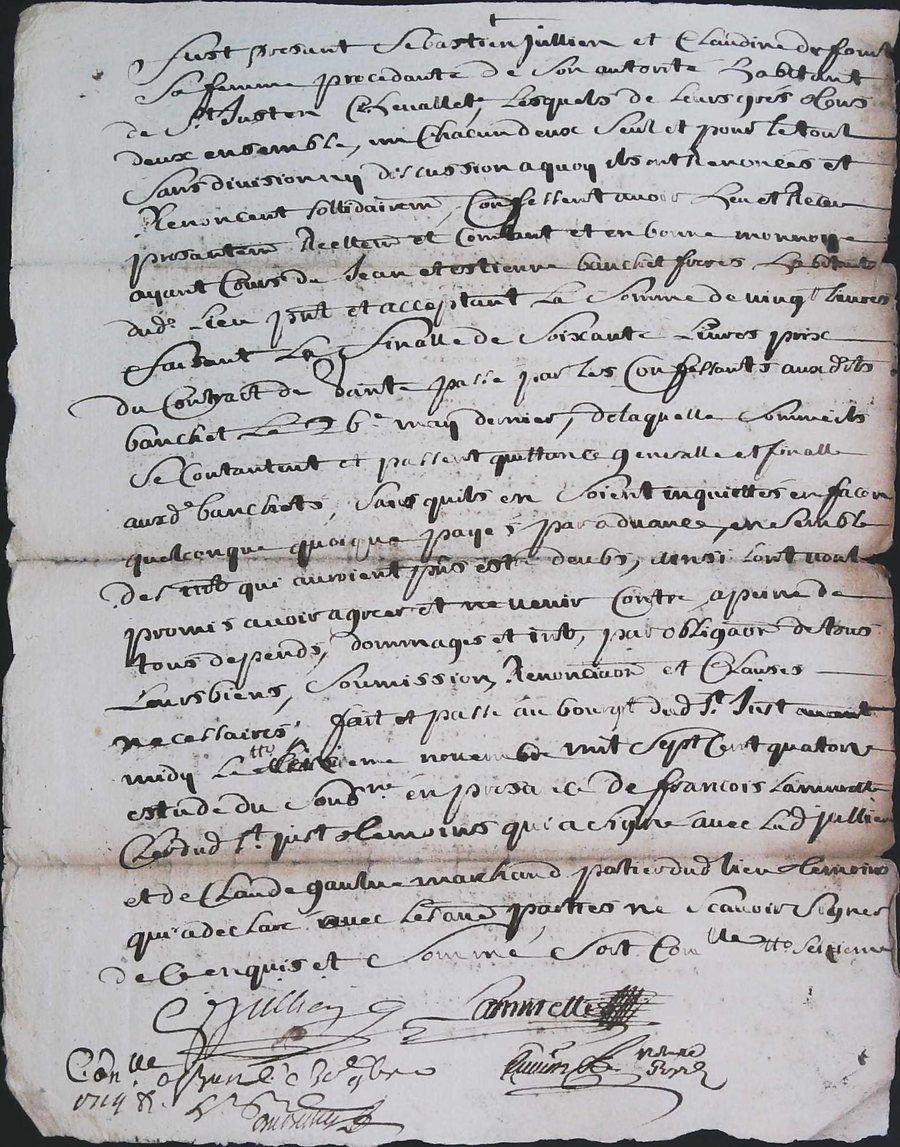 Fust presant Sebastien Jullien et Claudine de font
Sa femme procedante de Son autorité habitant
de St. Just en Chevallet, Lesquels de Leurs grés Lors
deux ensemble, un Chacun deux Seul et pour le tout
Sans division ny discussion a quoy ils ont Renoncés et
Renoncent sollidairemt, Confessent avoir heu et Receu
presantemt Reellemt et Contant et en bonne monnoye
ayant Cours de Jean et estienne banchet freres habitants
dud. Lieu pnt et acceptant La Somme de vingt Livres
faisant La finalle de Soixante Livres prix
du Contrait de vante passé par les Confessants auxdits
banchet Le 26e may dernier, de laquelle Somme ils
Se Contantent et passent quittance generalle et finalle
auxd. banchets, Sans quils en Soient inquiettés en facon
quelconque quoique payés par advance, ensemble
des intts qui auroient pus estre deubs, ainsi Lont
promis avoir a greer et ne venir Contre a peine de
tous depends, dommages et intts, par obligaon de tous
Leurs biens, Soumission, Renonciaon et Clauses
necessaires, fait et passé au bourgt dud St. Just avant
midy Le seizieme novembre mil Sept Cent quatorze
estude du Soubne en presance de francois Lamurette
Clerc dud St. just temoins qui a signé avec Led jullien
et de Claude gaulne marchand patier dud lieu temoins
qui a declaré avec Les aues parties ne Scavoir Signer
de Ce enquis et Sommé Soit Conlle seizieme
Cjullien Lamurette
Conlle a St Just Le 30e 9bre
1714 R.
notaire
Royal